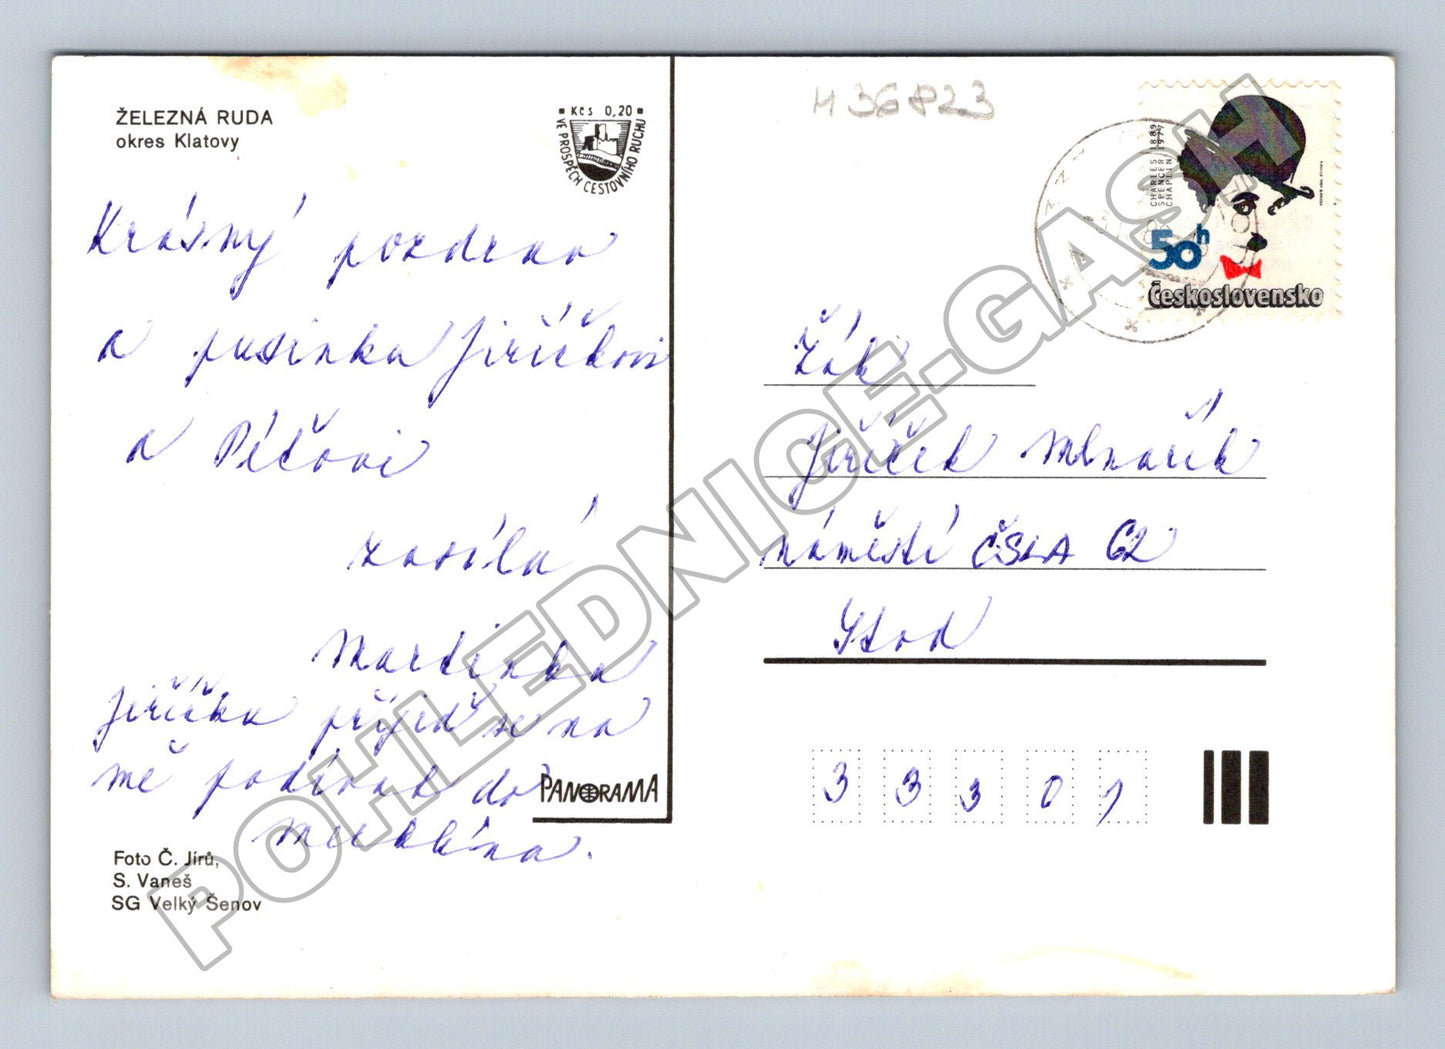 ŽELEZNÁ RUDA
okres Klatovy
Kčs 0,20
VE PROSPĚCH CESTOVNÍHO RUCHU
Krásný pozdrav
a pusinku Jiříčkovi
a Péťovi
zasílá
Martinka
Jiříčku přijeď se na
mě podívat do
PANORAMA
Foto Č. Jírů,
S. Vaneš
SG Velký Šenov
M 36823
CHARLES 1889
SPENCER 1977
CHAPLIN
50h
Československo
Žák
Jiříček Mlnařík
náměstí ČSLA 62
Stod
3 3 3 0 1
POHLEDNICE-GASH